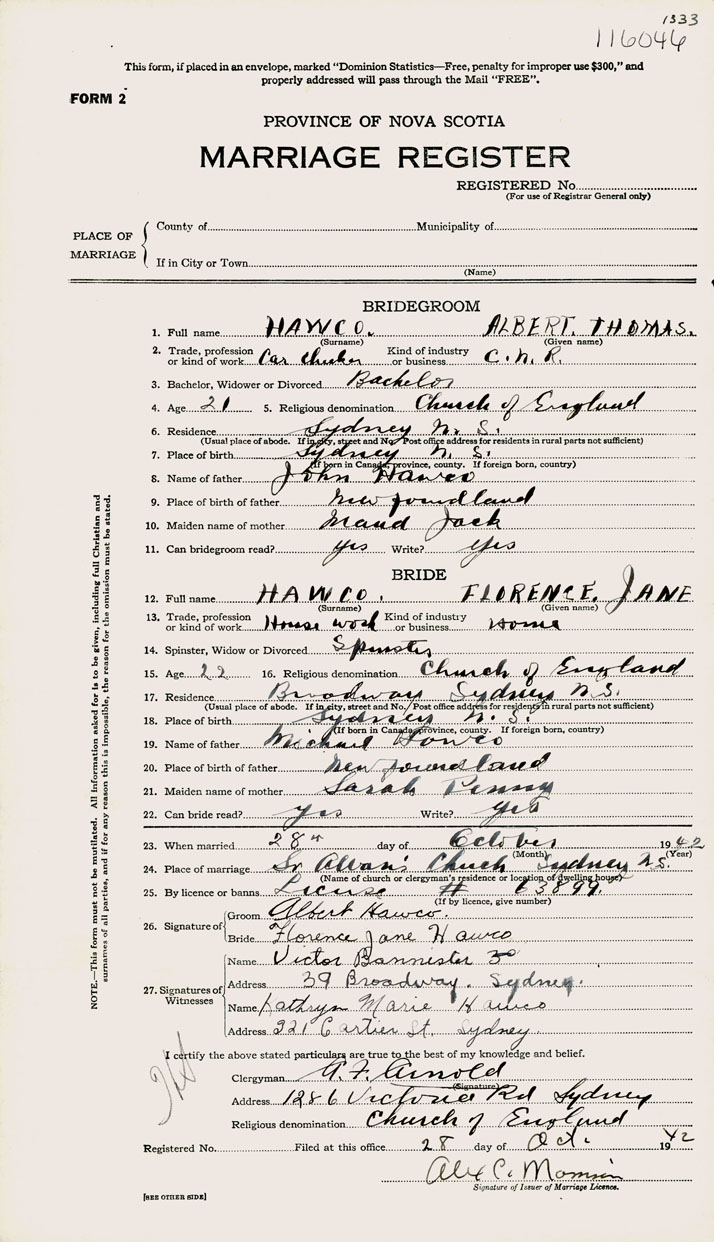 1333
116046
This form, if placed in an envelope, marked “Dominion Statistics—Free, penalty for improper use $300,” and
properly addressed will pass through the Mail “FREE”.
FORM 2
PROVINCE OF NOVA SCOTIA
MARRIAGE REGISTER
REGISTERED No.
(For use of Registrar General only)
PLACE OF MARRIAGE
County of Municipality of
If in City or Town
(Name)
BRIDEGROOM
1. Full name HAWCO. ALBERT. THOMAS.
(Surname) (Given name)
2. Trade, profession or kind of work Car Checker Kind of industry or business C.N.R.
3. Bachelor, Widower or Divorced Bachelor
4. Age 21 5. Religious denomination Church of England
6. Residence Sydney N. S.
(Usual place of abode. If in city, street and No. Post office address for residents in rural parts not sufficient)
7. Place of birth Sydney N. S.
(If born in Canada, province, county. If foreign born, country)
8. Name of father John Hawco
9. Place of birth of father Newfoundland
10. Maiden name of mother Maud Jack
11. Can bridegroom read? yes Write? yes
BRIDE
12. Full name HAWCO. FLORENCE. JANE
(Surname) (Given name)
13. Trade, profession or kind of work House work Kind of industry or business Home
14. Spinster, Widow or Divorced Spinster
15. Age 22 16. Religious denomination Church of England
17. Residence Broadway Sydney N.S.
(Usual place of abode. If in city, street and No. Post office address for residents in rural parts not sufficient)
18. Place of birth Sydney N. S.
(If born in Canada, province, county. If foreign born, country)
19. Name of father Michael Hawco
20. Place of birth of father Newfoundland
21. Maiden name of mother Sarah Penny
22. Can bride read? yes Write? yes
23. When married 28th day of October 1942
(Month) (Year)
24. Place of marriage St Alban's Church Sydney N.S.
(Name of church or clergyman's residence or location of dwelling house)
25. By licence or banns License # 63899
(If by licence, give number)
26. Signature of
Groom Albert Hawco.
Bride Florence Jane Hawco
27. Signatures of Witnesses
Name Victor Bannister
Address 39 Broadway. Sydney.
Name Kathryn Marie Hawco
Address 221 Cartier St. Sydney
I certify the above stated particulars are true to the best of my knowledge and belief.
Clergyman A. F. Arnold
(Signature)
Address 1286 Victoria Rd Sydney
Religious denomination Church of England
Registered No. Filed at this office 28 day of Oct. 1942
Alex C.
Signature of Issuer of Marriage Licence.
[SEE OTHER SIDE]
NOTE.—This form must not be mutilated. All information asked for is to be given, including full Christian and
surnames of all parties, and if for any reason this is impossible, the reason for the omission must be stated.